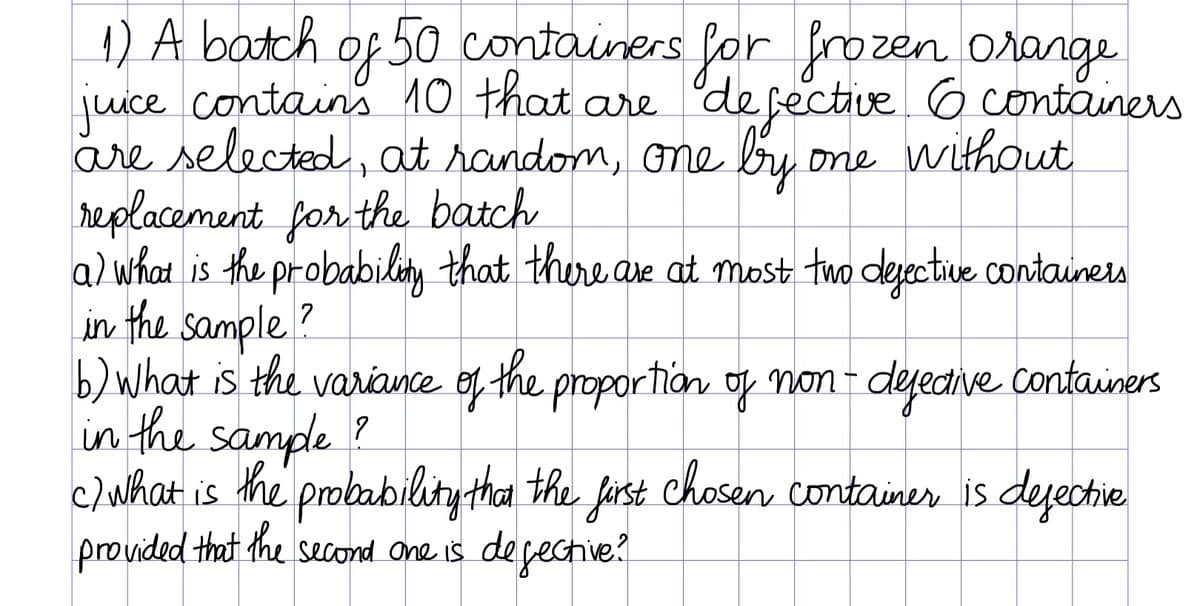 1) A batch of 50 containers for frozen orange
juice contains 10 that are defective. 6 containers
are selected, at random, one by one without
replacement for the batch
a) what is the probability that there are at most two defective containers
in the sample?
b) What is the variance of the proportion of non-defective containers
in the sample?
c) what is the probability that the first chosen container is defective
provided that the second one is defective?